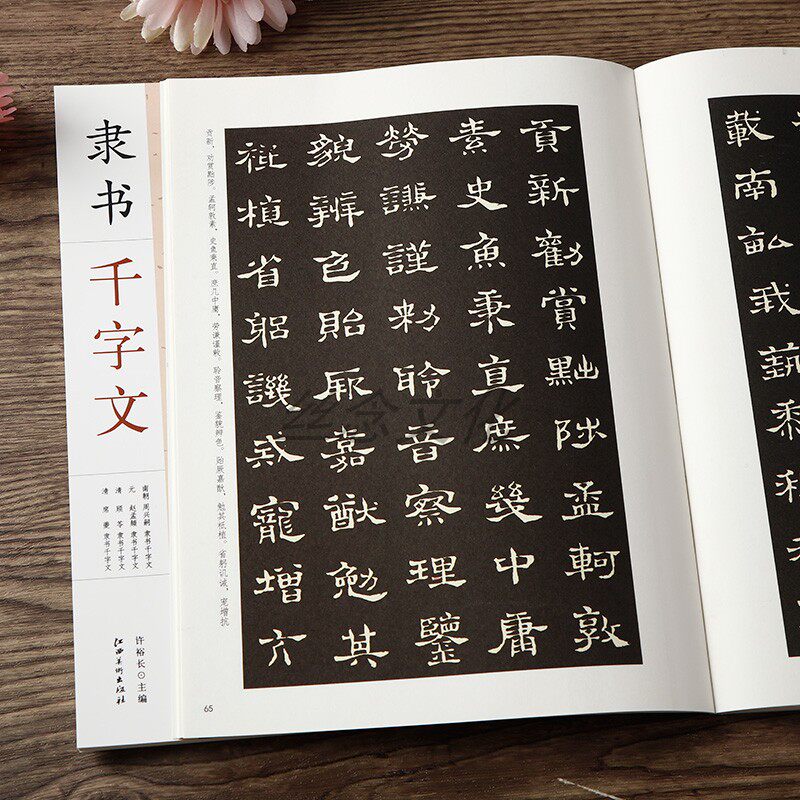 隶书
千字文
南朝 周兴嗣 隶书千字文
元 赵孟頫 隶书千字文
清 顾苓 隶书千字文
许裕长⊙主编
江西美术出版社
載南畝我藝黍稷
貢新勸賞黜陟孟軻敦
素史魚秉直庶幾中庸
勞謙謹勅聆音察理鑒
貌辨色貽厥嘉猷勉其
祗植省躳譏戒寵增亢
贡新，劝赏黜陟。孟轲敦素，史鱼秉直。庶几中庸，劳谦谨敕。聆音察理，鉴貌辨色。贻厥嘉猷，勉其祗植。省躬讥诫，宠增抗
65
丝念文化